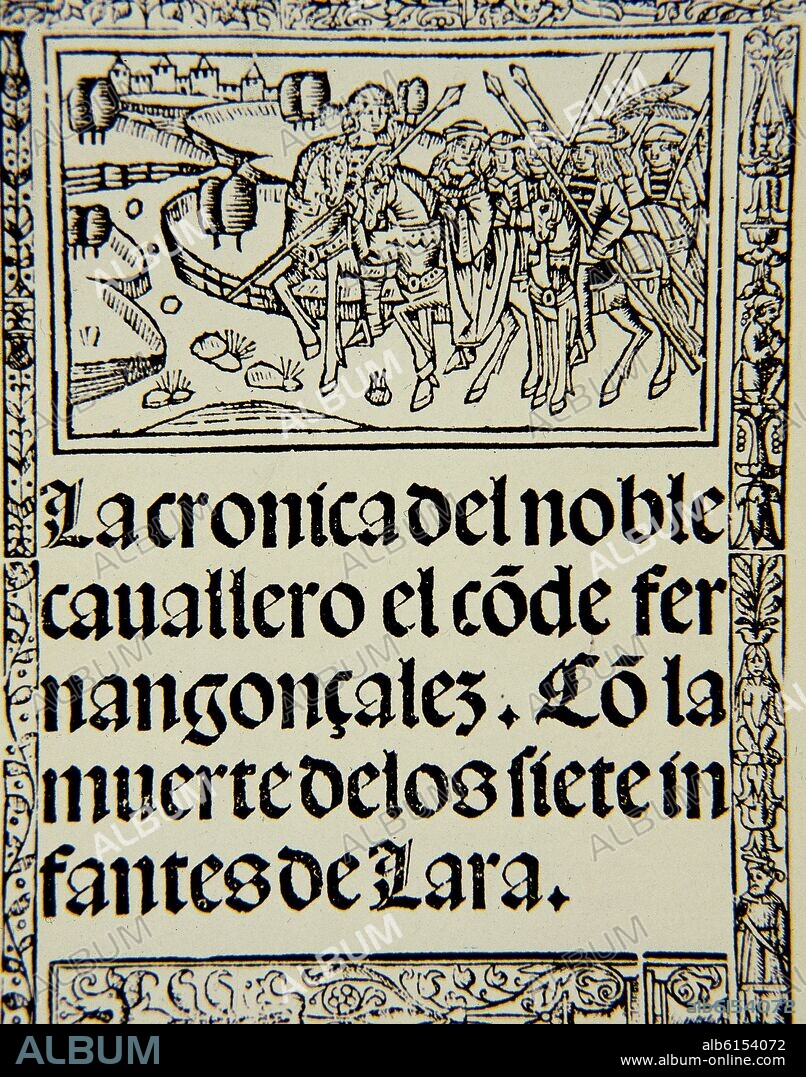 La cronica del noble
cauallero el cõde fer
nangonçalez. Cõ la
muerte delos siete in
fantes de Lara.
alb6154072
ALBUM
alb6154072
www.album-online.com